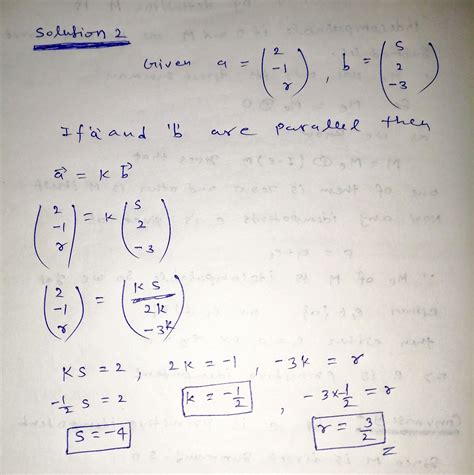 Solution 2
Given a = (2 -1 r), b = (s 2 -3)
If 'a' and 'b' are parallel then
a⃗ = k b⃗
(2 -1 r) = k (s 2 -3)
(2 -1 r) = (ks 2k -3k)
ks = 2, 2k = -1, -3k = r
-1/2 s = 2 k = -1/2, -3×-1/2 = r
s = -4 r = 3/2